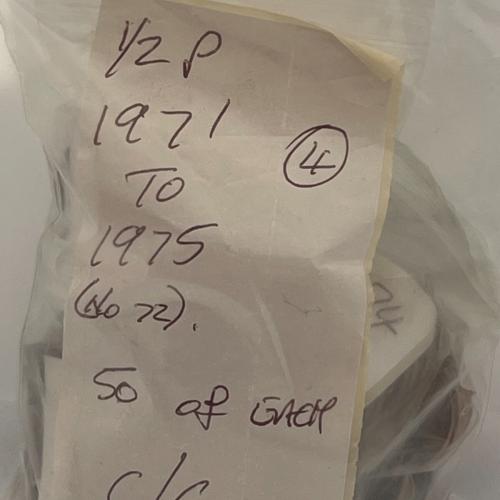 1/2 P
1971
④
TO
1975
(No 72).
50 of EACH
c/c